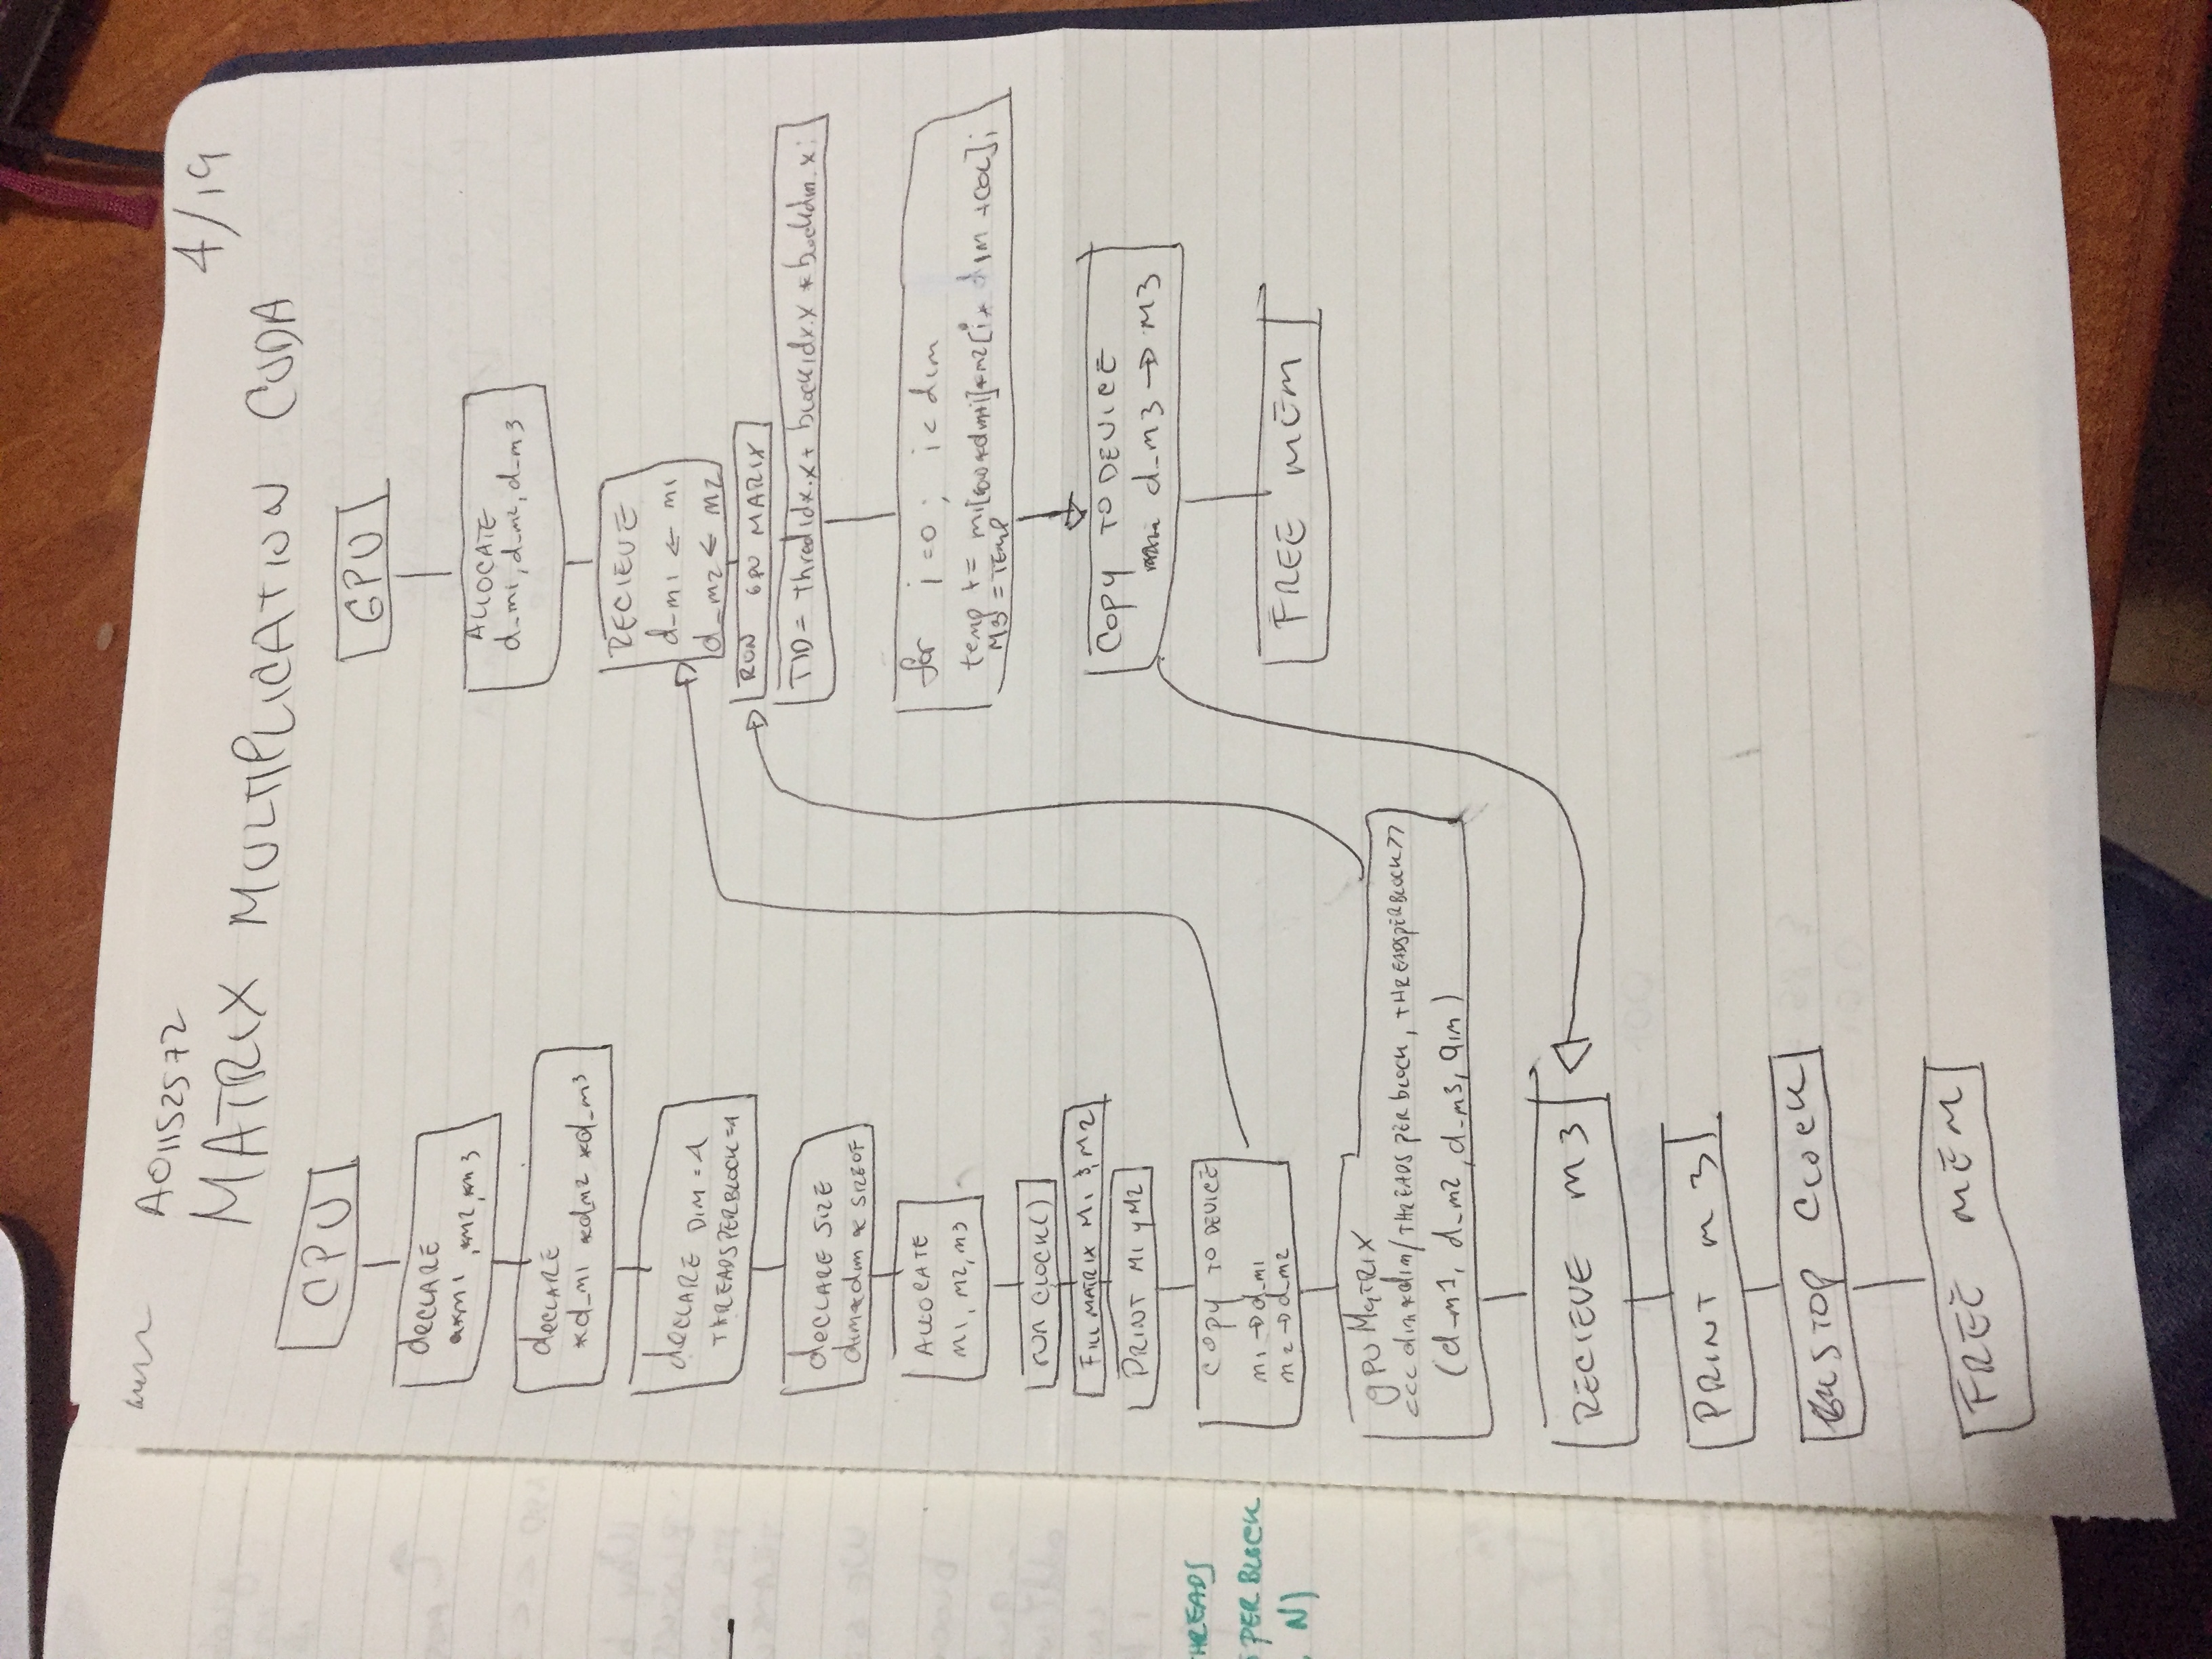 A01152572
4/19
MATRIX MULTIPLICATION CUDA
CPU
declare
*m1, *m2, *m3
declare
*d_m1 *dm2 *d_m3
declare DIM = 4
THREADSPERBLOCK=4
declare SIZE
dim*dim * SIZEOF
ALLOCATE
m1, m2, m3
run CLOCK()
FILL MATRIX M1 & M2
PRINT M1 y M2
copy TO DEVICE
m1 → d_m1
m2 → d_m2
gpu MATRIX
<<< dim*dim/THREADS PER block, THREADSPERBLOCK>>
(d_m1, d_m2, d_m3, dim)
RECIEVE m3
PRINT m3
STOP CLOCK
FREE MEM
GPU
ALLOCATE
d_m1, d_m2, d_m3
RECIEVE
d_m1 ← m1
d_m2 ← m2
RUN GPU MARIX
TID = thredidx.x + blockidx.x * bockdim.x;
for i=0; i< dim
temp += m1[row*dim+i]*m2[i* dim +col];
M3 = TEMP
COPY TO DEVICE
d_m3 → M3
FREE MEM
THREADS
PER BLOCK
, N)